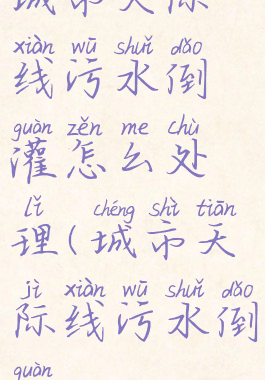 城市天际
xiàn wū shuǐ dǎo
线污水倒
guàn zěn me chù
灌怎么处
lǐ chéng shì tiān
理(城市天
jì xiàn wū shuǐ dǎo
际线污水倒
guàn